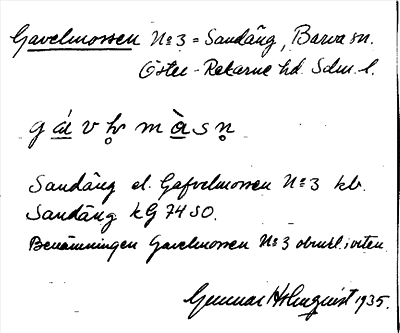 Gavelmossen No 3 = Sandäng, Barva sn.
Öster-Rekarne hd. Sdm. l.
g á v l̥ m à s n̥
Sandäng el. Gafvelmossen No 3 kb.
Sandäng kG 74 SO.
Benämningen Gavelmossen No 3 obrukl. i orten.
Gunnar Holmquist 1935.